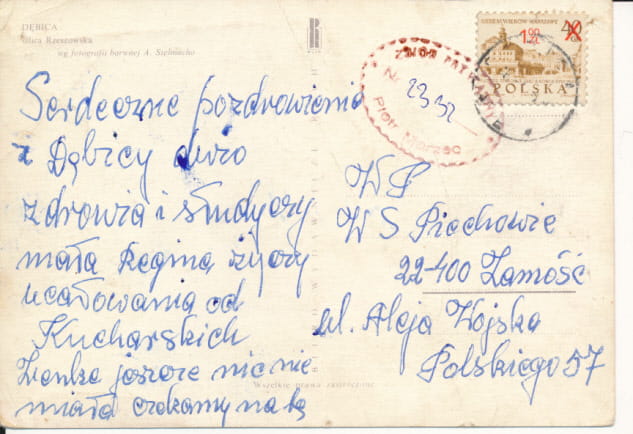 DĘBICA
Ulica Rzeszowska
wg fotografii barwnej A. Stelmacha
Serdeczne pozdrowienia
z Dębicy dużo
zdrowia i
mała Regina życzy
ucałowania od
Kucharskich
Zenka jeszcze nic nie
miała czekamy na tą
Wszelkie prawa zastrzeżone
Nr. 2332
Piotr
SIEDEM WIEKÓW WARSZAWY
1,90 ZŁ
40
POLSKA
WP
W S Piechowie
22-400 Zamość
ul. Aleja Wojska
Polskiego 57